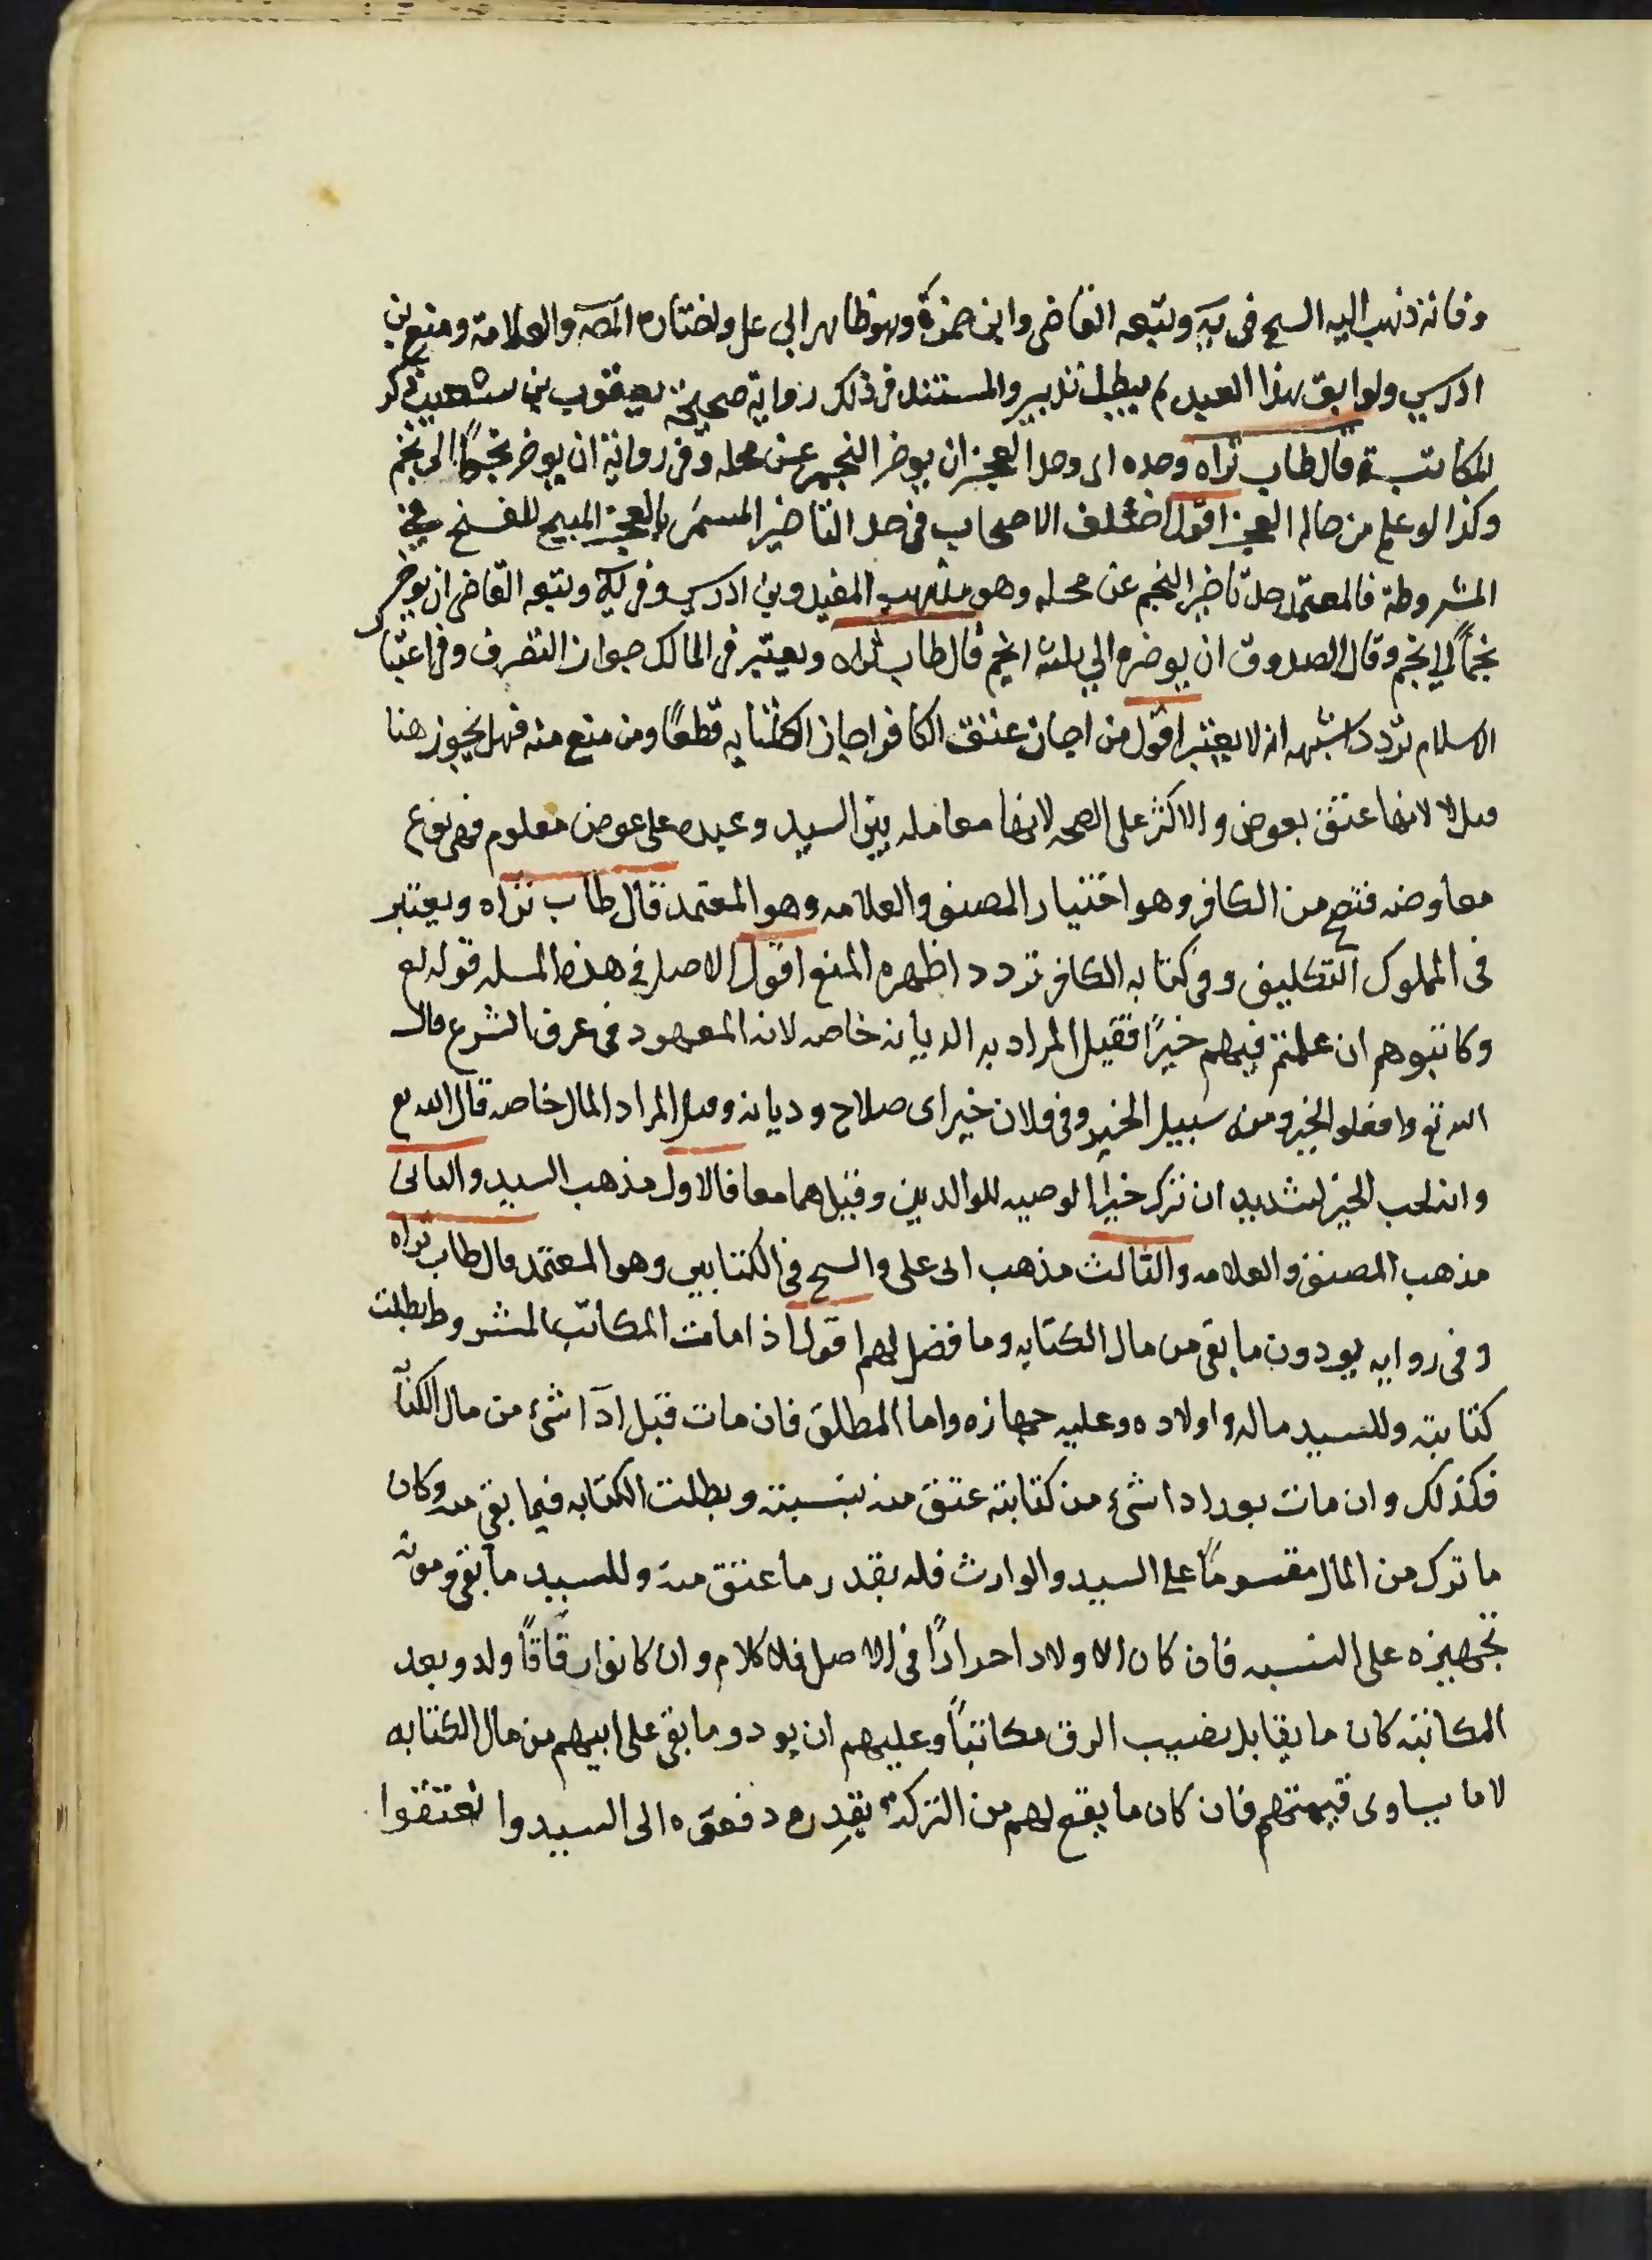 وفاته ذهب اليه الشيخ فى يه وتبعه القاضى وابن حمزة وهو ظاهر ابى على واختاره المصه والعلامة ومنع بن
ادريس ولو ابق هذا العبد لم يبطل تدبير والمستند فى ذلك رواية صحيحة يعقوب بن شعيب ذكر
المكاتبة قال طاب ثراه وحده اى وحد العجز ان يوخر النجم عن محله وفى رواية ان يوخر نجمًا الى نجم
وكذا لو علم من حاله العجز اقول اختلف الاصحاب فى حد التاخير المسمى بالعجز المبيح للفسخ فى
المشروطة فالمعتمد حد تاخير النجم عن محله وهو مذهب المفيد وبن ادريس وفى يه وتبعه القاضى ان يوخر
نجمًا الى نجم وقال الصدوق ان يوخره الى ثلثه انجم قال طاب ثراه ويعتبر فى المالك جواز التصرف وفى اعتبار
الاسلام تردد اشبهه انه لا يعتبر اقول من اجاز عتق الكافر اجاز الكتابه قطعًا ومن منع منه فهل يجوز هنا
قيل لا لانها عتق بعوض والاكثر على الصحه لانها معامله بين السيد وعبده على عوض معلوم فهى نوع
معاوضه فتصح من الكافر وهو اختيار المصنف والعلامه وهو المعتمد قال طاب ثراه ويعتبر
فى المملوك التكليف وفى كتابه الكافر تردد اظهره المنع اقول الاصل فى هذه المسله قوله تع
وكاتبوهم ان علمتم فيهم خيرًا فقيل المراد به الديانه خاصه لانه المعهود فى عرف الشرع قال
الله تع وافعلوا الخير ومن سبيل الخير وفى فلان خير اى صلاح وديانه وقيل المراد المال خاصه قال الله تع
وانه لحب الخير لشديد ان ترك خيرا الوصيه للوالدين وقيل هما معا فالاول مذهب السيد والثانى
مذهب المصنف والعلامه والثالث مذهب ابى على والشيخ فى الكتابين وهو المعتمد قال طاب ثراه
وفى روايه يودون ما بقى من مال الكتابه وما فضل لهم اقول اذا مات المكاتب المشروط بطلت
كتابته وللسيد ماله واولاده وعليه جهازه واما المطلق فان مات قبل اداء شئ من مال الكتابه
فكذلك وان مات بعد اداء شئ من كتابته عتق منه بنسبته وبطلت الكتابه فيما بقى منه وكان
ما ترك من المال مقسومًا على السيد والوارث فله بقدر ما عتق منه وللسيد ما بقى ومونه
تجهيزه على النسبه فان كان الاولاد احرارًا فى الاصل فلا كلام وان كانوا رقاقًا ولدو بعد
المكاتبه كان ما يقابل نصيب الرق مكاتبًا وعليهم ان يودو ما بقى على ابيهم من مال الكتابه
لا ما يساوى قيمتهم فان كان ما يقع لهم من التركه بقدره دفعوه الى السيد وانعتقوا